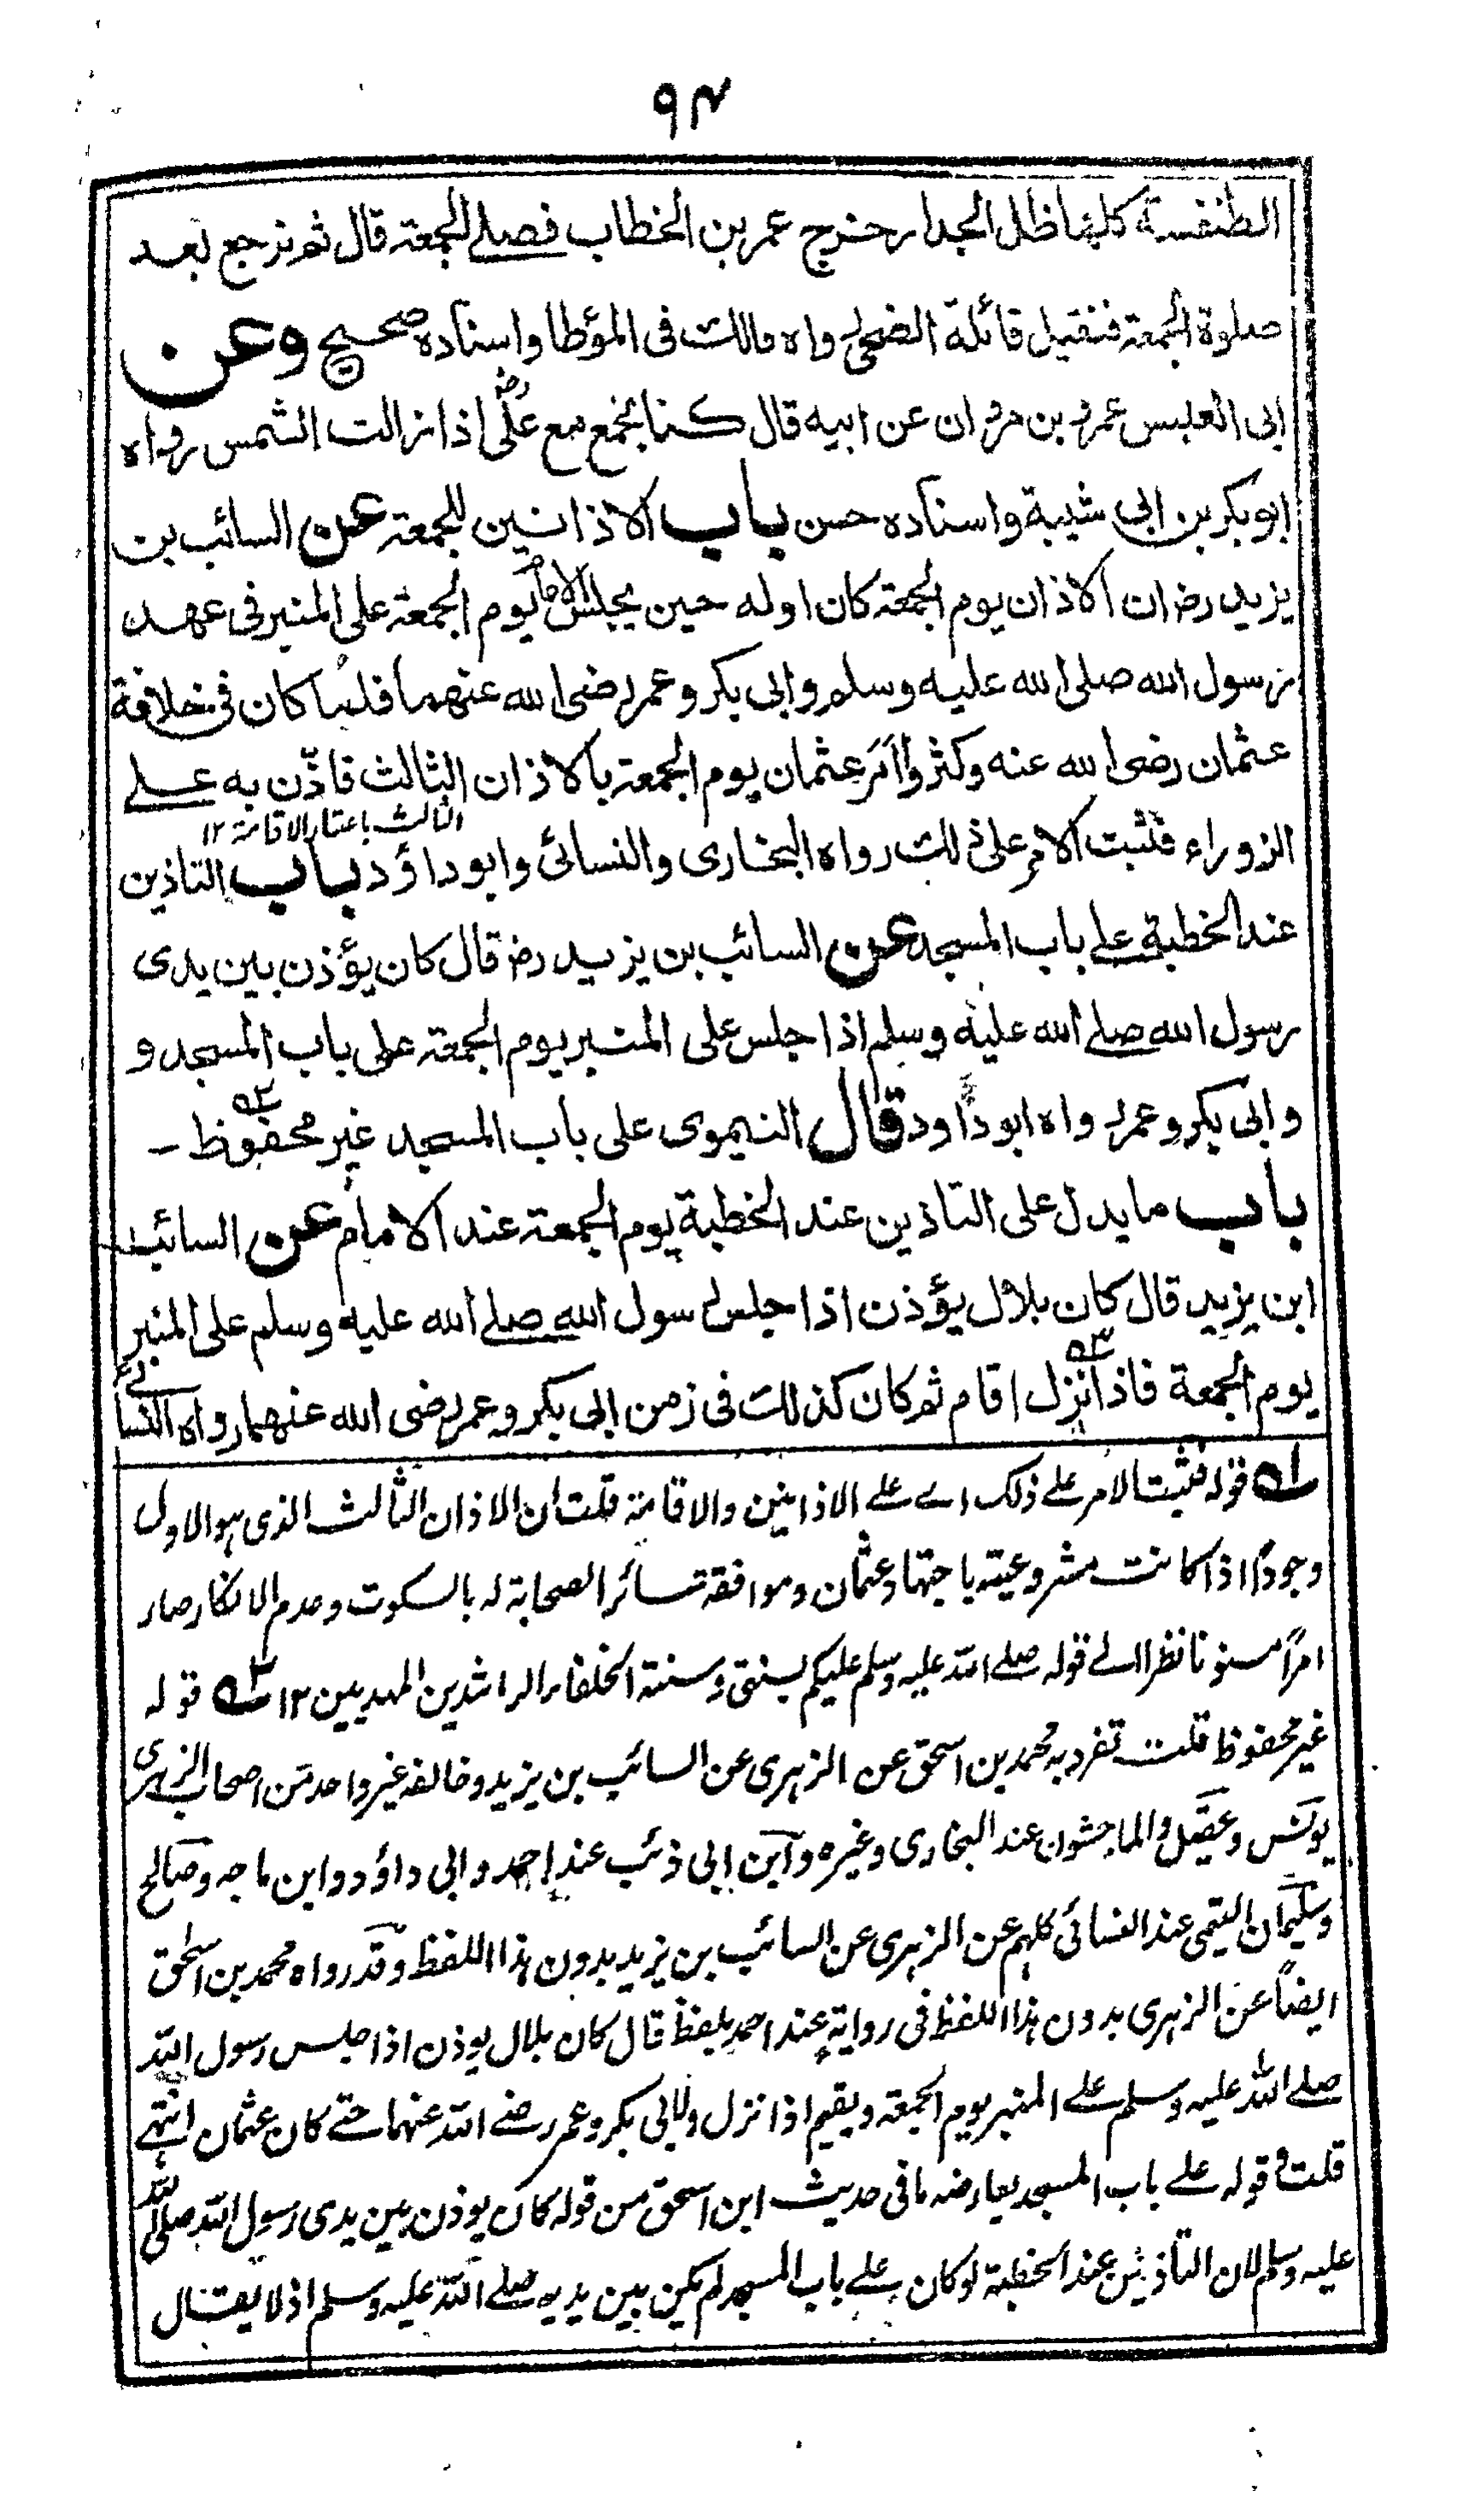 ۹۴
الطنفسة كلها ظل الجدار خرج عمر بن الخطاب فصلے الجمعة قال ثم نرجع بعد
صلوة الجمعة فنقيل قائلة الضحى رواه مالك فى المؤطا واسناده صحيح وعن
ابى العلبس عمرو بن مروان عن ابيه قال كنا نجمع مع علىّ رض اذا زالت الشمس رواه
ابوبكر بن ابى شيبة واسناده حسن باب الاذانين للجمعة عن السائب بن
يزيد رض ان الاذان يوم الجمعة كان اوله حين يجلس الامام يوم الجمعة على المنبر فى عهد
رسول الله صلى الله عليه وسلم وابى بكر وعمر رضى الله عنهما فلما كان فى خلافة
عثمان رضى الله عنه وكثروا امر عثمان يوم الجمعة بالاذان الثالث فاذّن به علے
الثالث باعتبار الاقامة ۱۲
الزوراء فثبت الامر على ذلك رواه البخارى والنسائى وابوداؤد باب التاذين
عند الخطبة علے باب المسجد عن السائب بن يزيد رض قال كان يؤذن بين يدى
رسول الله صلے الله عليه وسلم اذا جلس على المنبر يوم الجمعة على باب المسجد و
وابى بكر وعمر رواه ابوداود قال النيموى على باب المسجد غير محفوظ ۲ـه -
باب ما يدل على التاذين عند الخطبة يوم الجمعة عند الامام عن السائب
ابن يزيد قال كان بلال يؤذن اذا جلس رسول الله صلے الله عليه وسلم على المنبر
يوم الجمعة فاذا نزل ۳ـه اقام ثم كان كذلك فى زمن ابى بكر وعمر رضى الله عنهما رواه النسائے
۱ـه قوله فثبت الامر علے ذلك اے علے الاذانين والاقامة قلت ان الاذان الثالث الذى هو الاول
وجوداً اذا كانت مشروعيته باجتهاد عثمان وموافقة سائر الصحابة له بالسكوت وعدم الانكار صار
امراً مسنونا نظرا الے قوله صلے الله عليه وسلم عليكم بسنتى وسنة الخلفاء الراشدين المهديين ۱۲ ۲ـه قوله
غير محفوظ قلت تفرد به محمد بن اسحق عن الزهرى عن السائب بن يزيد وخالفه غير واحد من اصحاب الزهرى
يونس وعقيل والماجشون عند البخارى وغيره وابن ابى ذئب عند احمد وابى داؤد وابن ماجه وصالح
وسليمان التيمى عند النسائى كلهم عن الزهرى عن السائب بن يزيد بدون هذا اللفظ وقد رواه محمد بن اسحٰق
ايضاً عن الزهرى بدون هذا اللفظ فى رواية عند احمد بلفظ قال كان بلال يوذن اذا جلس رسول الله
صلے الله عليه وسلم علے المنبر يوم الجمعة ويقيم اذا نزل ولابى بكر وعمر رضے الله عنهما حتے كان عثمان انتهے
قلت وقوله علے باب المسجد يعارضه ما فى حديث ابن اسحق من قوله كان يوذن بين يدى رسول الله صلى الله
عليه وسلم لان التاذين عند الخطبة لو كان علے باب المسجد لم يكن بين يديه صلے الله عليه وسلم اذ لا يقال